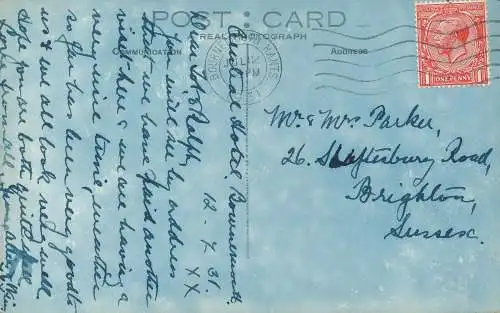 POST CARD
REAL PHOTOGRAPH
COMMUNICATION
ADDRESS
BOURNEMOUTH HANTS
PM
ONE PENNY
Mr & Mrs Parker,
26. Shaftesbury Road,
Brighton,
Sussex.
Central Hotel, Bournemouth.
12-7-31.
& Ralph, XX
You will see by address
that we have paid another
visit here & we are having a
very nice time, weather
so far has been very good to
us & we all look very well.
Hope you are both quite
Love from all